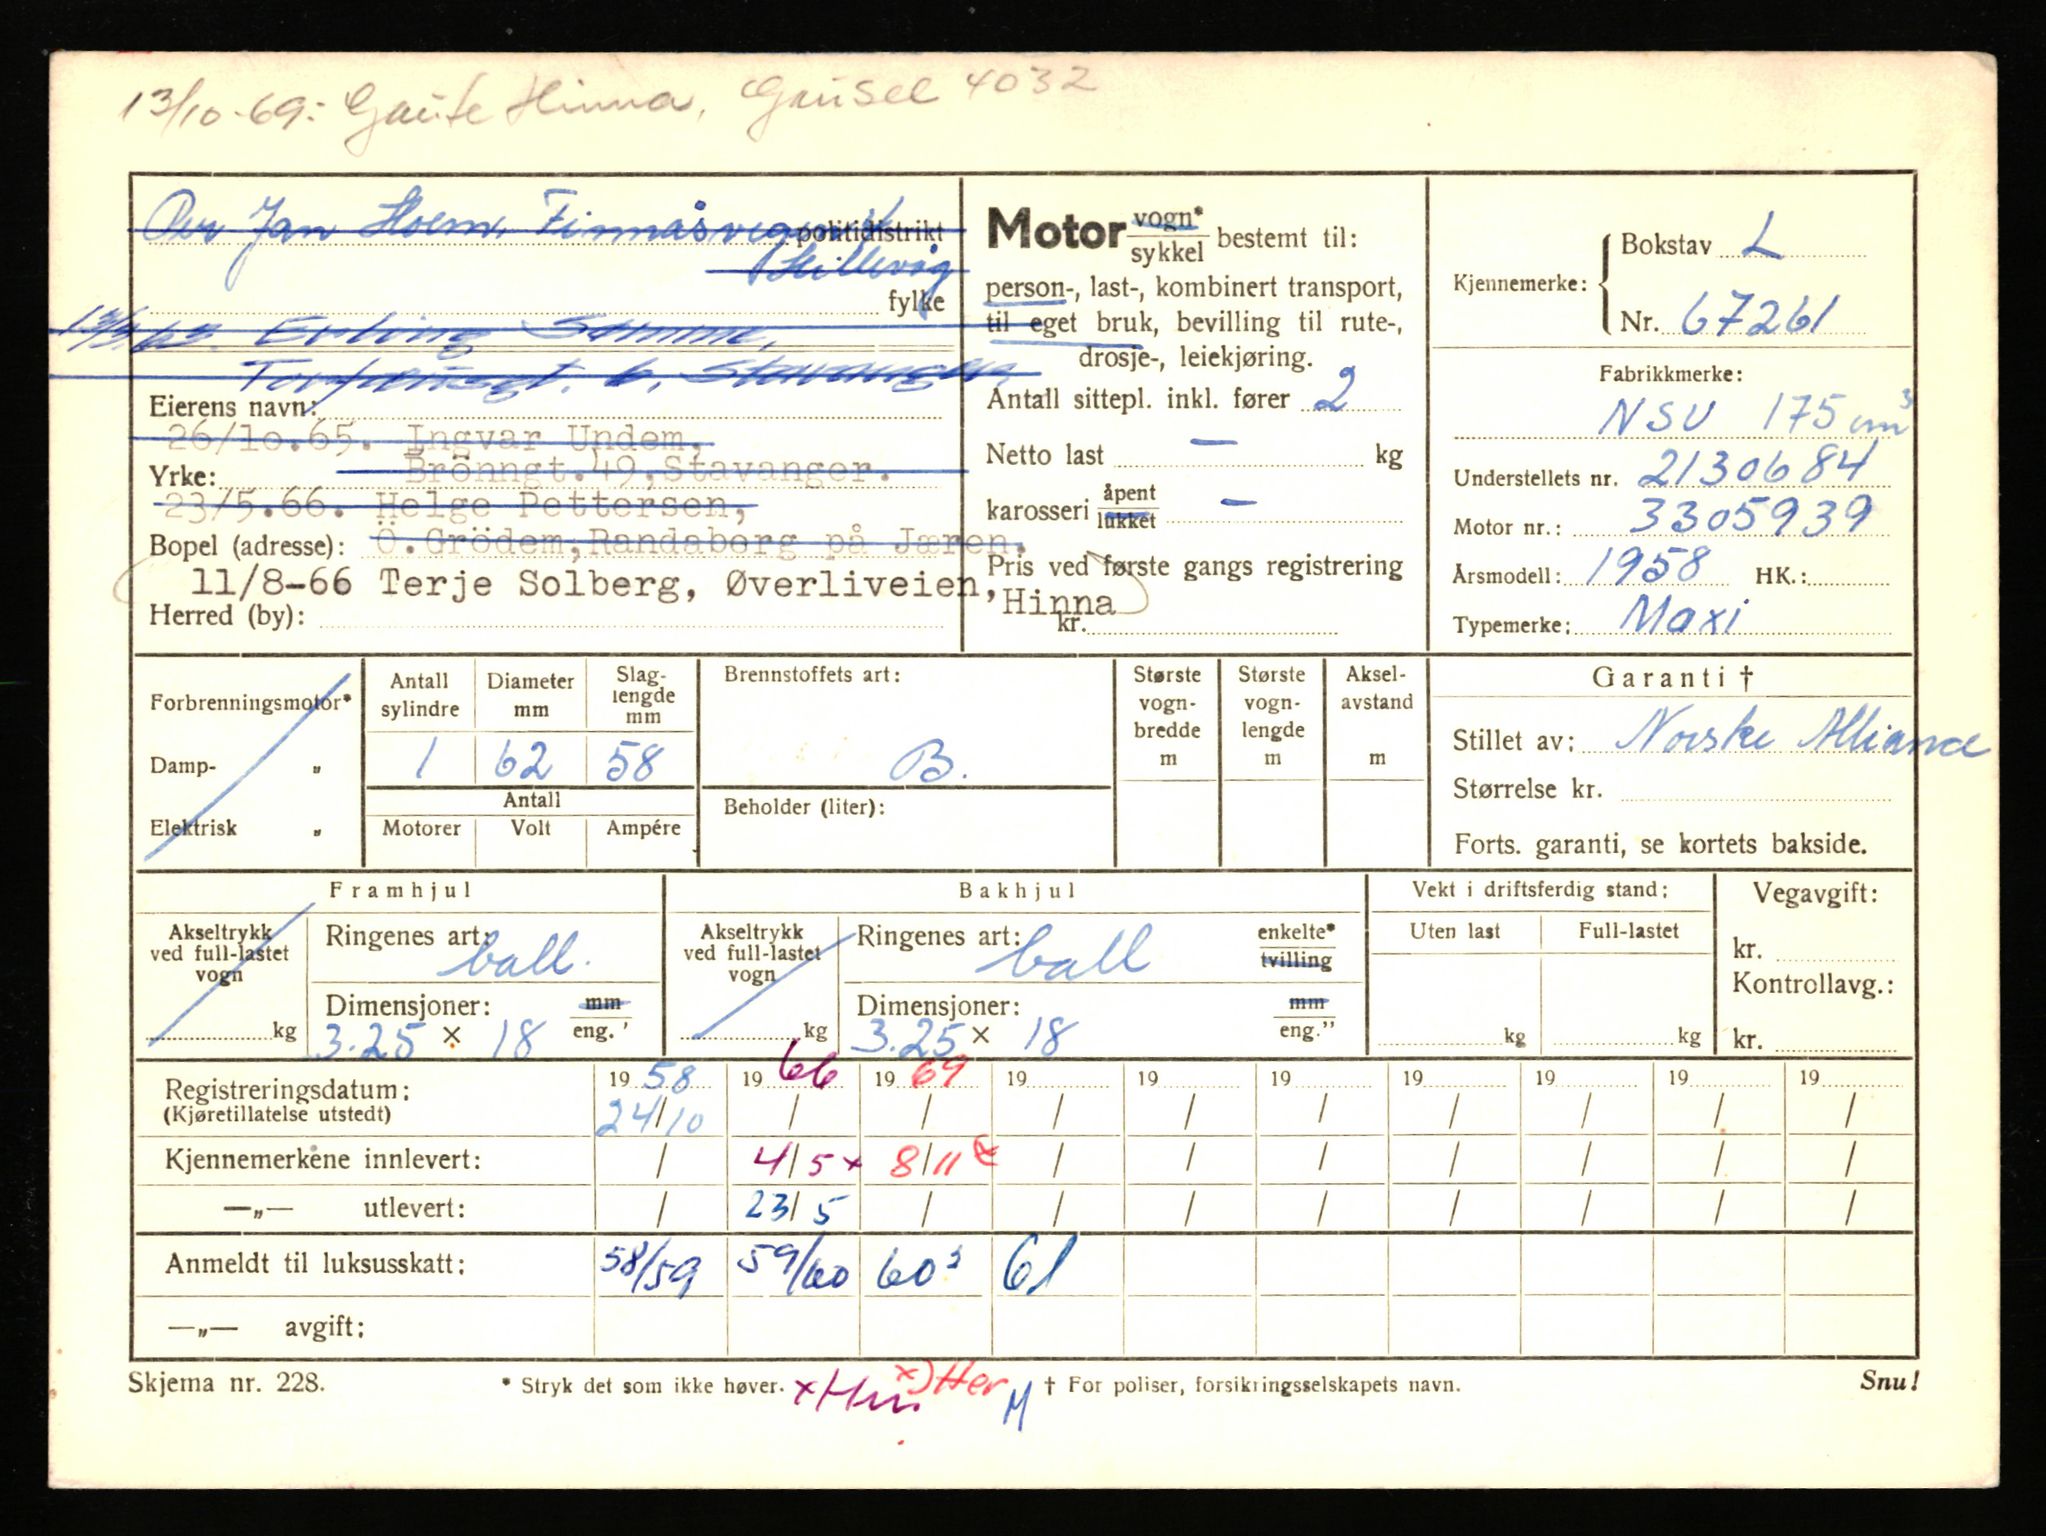 13/10-69: Gaute Hinna, Gausel 4032
Per Jan Holm, Finnåsvegen
politidistrikt
Hillevåg
fylke
Erling Sømme,
6, Stavanger
Eierens navn:
26/10.65. Ingvar Undem,
Yrke: Brönngt. 49, Stavanger.
23/5.66. Helge Pettersen,
Bopel (adresse): Ö.Grödem, Randaberg på Jæren.
11/8-66 Terje Solberg, Øverliveien, Hinna
Herred (by):
Motor vogn* / sykkel bestemt til:
person-, last-, kombinert transport,
til eget bruk, bevilling til rute-,
drosje-, leiekjøring.
Antall sittepl. inkl. fører 2
Netto last — kg
karosseri åpent / lukket —
Pris ved første gangs registrering
kr.
Kjennemerke: Bokstav L
Nr. 67261
Fabrikkmerke:
NSU 175 cm³
Understellets nr. 2130684
Motor nr.: 3305939
Årsmodell: 1958 HK.:
Typemerke: Maxi
Forbrenningsmotor*
Damp- „
Elektrisk „
Antall sylindre Diameter mm Slaglengde mm
1 62 58
Antall
Motorer Volt Ampére
Brennstoffets art:
B.
Beholder (liter):
Største vogn-bredde m
Største vogn-lengde m
Aksel-avstand m
Garanti †
Stillet av: Norske Alliance
Størrelse kr.
Forts. garanti, se kortets bakside.
Framhjul
Akseltrykk ved full-lastet vogn kg
Ringenes art: ball.
Dimensjoner: mm / eng."
3.25 × 18
Bakhjul
Akseltrykk ved full-lastet vogn kg
Ringenes art: ball enkelte* / tvilling
Dimensjoner: mm / eng."
3.25 × 18
Vekt i driftsferdig stand:
Uten last Full-lastet
kg kg
Vegavgift:
kr.
Kontrollavg.:
kr.
Registreringsdatum: 19 58 19 66 19 69 19 19 19 19 19 19 19
(Kjøretillatelse utstedt) 24/10 / / / / / / / / /
Kjennemerkene innlevert: / 4/5 x 8/11 x / / / / / / /
—„— utlevert: / 23/5 / / / / / / / /
Anmeldt til luksusskatt: 58/59 59/60 60³ 61
—„— avgift:
Skjema nr. 228. * Stryk det som ikke høver. † For poliser, forsikringsselskapets navn. Snu!